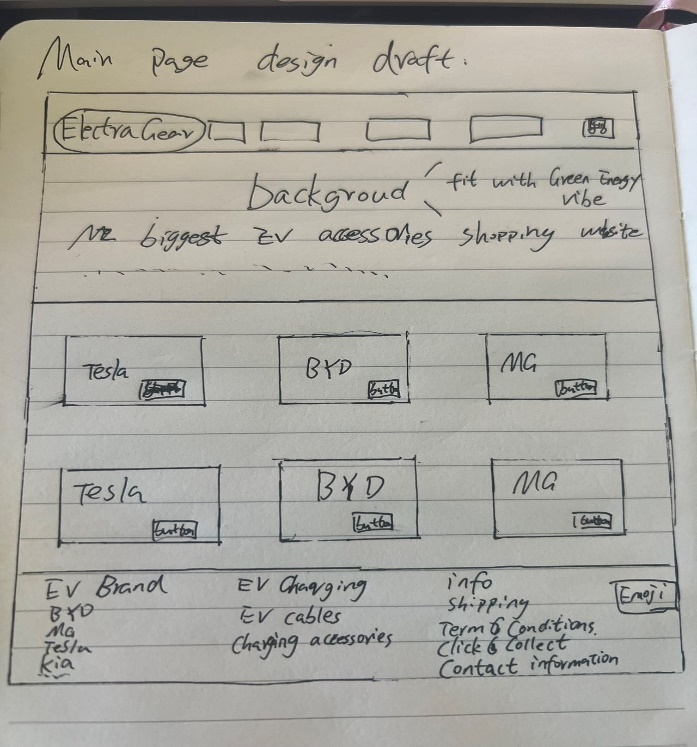 Main page design draft.
ElectraGear
backgroud
fit with Green Energy
vibe
NZ biggest EV accessories shopping website
Tesla
BYD
button
MG
button
Tesla
button
BYD
button
MG
button
EV Brand
BYD
MG
Tesla
Kia
EV Charging
EV cables
Charging accessories
info
shipping
Term & Conditions.
Click & Collect
Contact information
Emoji